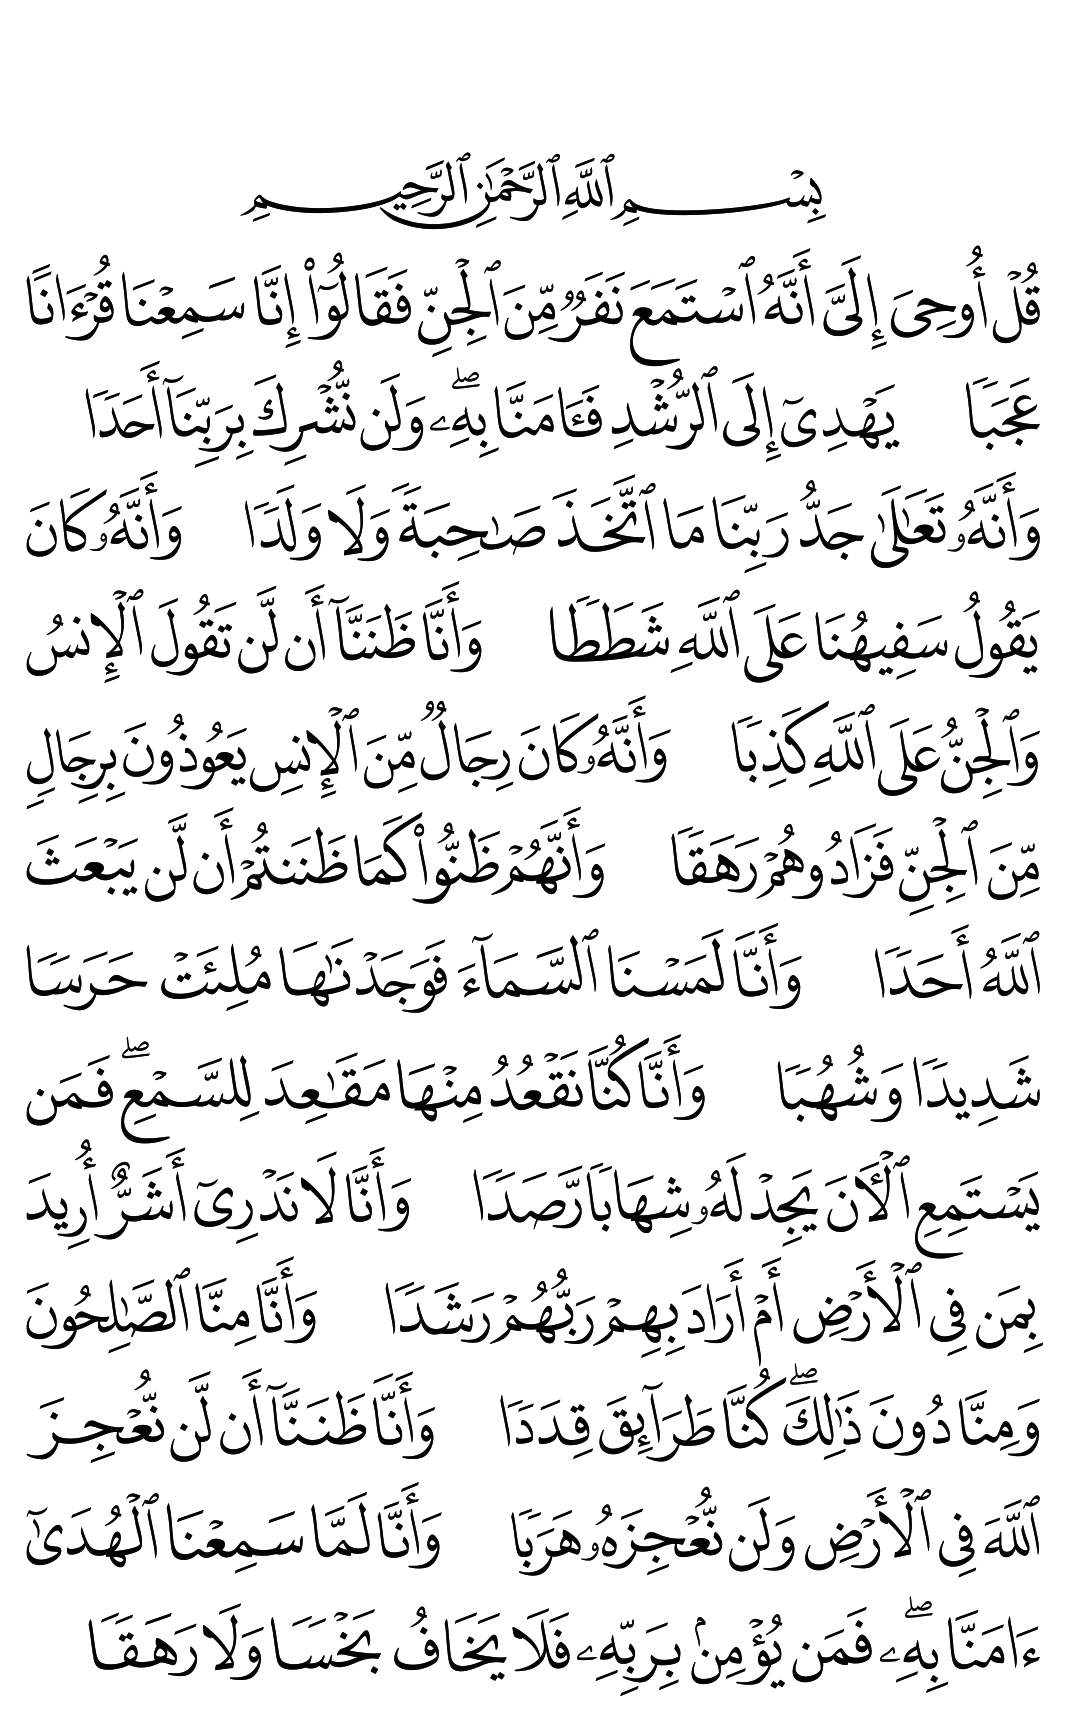 بِسْمِ ٱللَّهِ ٱلرَّحْمَٰنِ ٱلرَّحِيمِ
قُلْ أُوحِىَ إِلَىَّ أَنَّهُ ٱسْتَمَعَ نَفَرٌ مِّنَ ٱلْجِنِّ فَقَالُوٓا۟ إِنَّا سَمِعْنَا قُرْءَانًا
عَجَبًا يَهْدِىٓ إِلَى ٱلرُّشْدِ فَـَٔامَنَّا بِهِۦ ۖ وَلَن نُّشْرِكَ بِرَبِّنَآ أَحَدًا
وَأَنَّهُۥ تَعَٰلَىٰ جَدُّ رَبِّنَا مَا ٱتَّخَذَ صَٰحِبَةً وَلَا وَلَدًا وَأَنَّهُۥ كَانَ
يَقُولُ سَفِيهُنَا عَلَى ٱللَّهِ شَطَطًا وَأَنَّا ظَنَنَّآ أَن لَّن تَقُولَ ٱلْإِنسُ
وَٱلْجِنُّ عَلَى ٱللَّهِ كَذِبًا وَأَنَّهُۥ كَانَ رِجَالٌ مِّنَ ٱلْإِنسِ يَعُوذُونَ بِرِجَالٍ
مِّنَ ٱلْجِنِّ فَزَادُوهُمْ رَهَقًا وَأَنَّهُمْ ظَنُّوا۟ كَمَا ظَنَنتُمْ أَن لَّن يَبْعَثَ
ٱللَّهُ أَحَدًا وَأَنَّا لَمَسْنَا ٱلسَّمَآءَ فَوَجَدْنَٰهَا مُلِئَتْ حَرَسًا
شَدِيدًا وَشُهُبًا وَأَنَّا كُنَّا نَقْعُدُ مِنْهَا مَقَٰعِدَ لِلسَّمْعِ ۖ فَمَن
يَسْتَمِعِ ٱلْـَٔانَ يَجِدْ لَهُۥ شِهَابًا رَّصَدًا وَأَنَّا لَا نَدْرِىٓ أَشَرٌّ أُرِيدَ
بِمَن فِى ٱلْأَرْضِ أَمْ أَرَادَ بِهِمْ رَبُّهُمْ رَشَدًا وَأَنَّا مِنَّا ٱلصَّٰلِحُونَ
وَمِنَّا دُونَ ذَٰلِكَ ۖ كُنَّا طَرَآئِقَ قِدَدًا وَأَنَّا ظَنَنَّآ أَن لَّن نُّعْجِزَ
ٱللَّهَ فِى ٱلْأَرْضِ وَلَن نُّعْجِزَهُۥ هَرَبًا وَأَنَّا لَمَّا سَمِعْنَا ٱلْهُدَىٰٓ
ءَامَنَّا بِهِۦ ۖ فَمَن يُؤْمِنۢ بِرَبِّهِۦ فَلَا يَخَافُ بَخْسًا وَلَا رَهَقًا